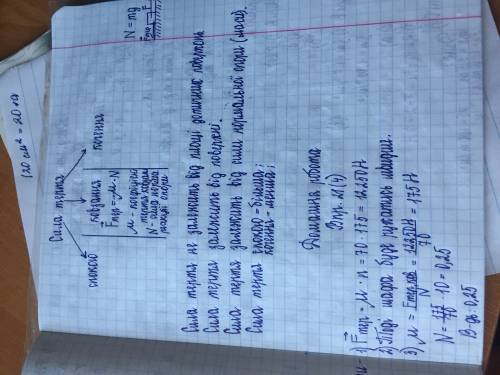 120 см² = 20 г/л
N = mg
Fтер
F
Сила тертя
спокою
ковзання
кочення
Fтер = μ·N
μ - коефіцієнт
тертя ковзан.
N - сила нормал.
реакції опори
Сила тертя не залежить від площі дотичних поверхонь
Сила тертя залежить від поверхні.
Сила тертя залежить від сили нормальної опори (маси).
Сила тертя спокою - більша;
кочення - менша;
Домашня робота
Впр. 21(4)
1) Fтер = μ · n = 70 · 175 = 12250 Н
2) Тоді шафа буде рухатись швидше.
3) μ = Fтер.ков / N = 12250 Н / 70 = 175 Н
N = 175/70 · 10 = 0,25
В-дь: 0,25